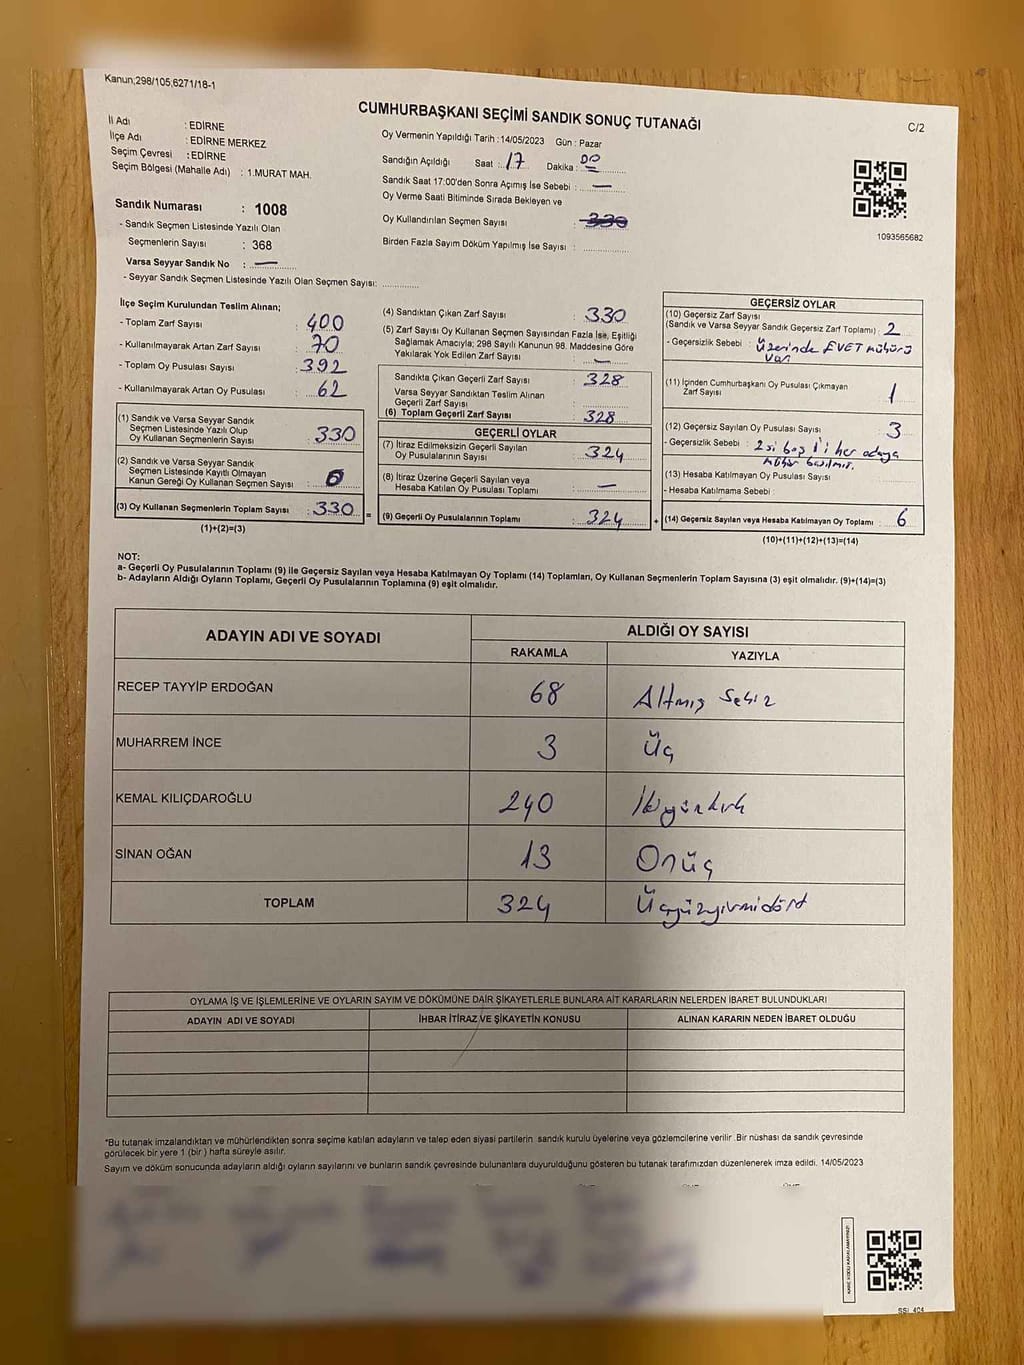 Kanun;298/105;6271/18-1
CUMHURBAŞKANI SEÇİMİ SANDIK SONUÇ TUTANAĞI
C/2
İl Adı : EDİRNE
İlçe Adı : EDİRNE MERKEZ
Seçim Çevresi : EDİRNE
Seçim Bölgesi (Mahalle Adı) : 1.MURAT MAH.
Sandık Numarası : 1008
- Sandık Seçmen Listesinde Yazılı Olan
Seçmenlerin Sayısı : 368
Varsa Seyyar Sandık No : —
- Seyyar Sandık Seçmen Listesinde Yazılı Olan Seçmen Sayısı:
Oy Vermenin Yapıldığı Tarih : 14/05/2023 Gün : Pazar
Sandığın Açıldığı Saat : 17 Dakika : 00
Sandık Saat 17:00'den Sonra Açımış İse Sebebi : —
Oy Verme Saati Bitiminde Sırada Bekleyen ve
Oy Kullandırılan Seçmen Sayısı : 330
Birden Fazla Sayım Döküm Yapılmış İse Sayısı :
1093565682
İlçe Seçim Kurulundan Teslim Alınan;
- Toplam Zarf Sayısı : 400
- Kullanılmayarak Artan Zarf Sayısı : 70
- Toplam Oy Pusulası Sayısı : 392
- Kullanılmayarak Artan Oy Pusulası : 62
(1) Sandık ve Varsa Seyyar Sandık
Seçmen Listesinde Yazılı Olup
Oy Kullanan Seçmenlerin Sayısı : 330
(2) Sandık ve Varsa Seyyar Sandık
Seçmen Listesinde Kayıtlı Olmayan
Kanun Gereği Oy Kullanan Seçmen Sayısı : 0
(3) Oy Kullanan Seçmenlerin Toplam Sayısı : 330
(1)+(2)=(3)
(4) Sandıktan Çıkan Zarf Sayısı : 330
(5) Zarf Sayısı Oy Kullanan Seçmen Sayısından Fazla İse, Eşitliği
Sağlamak Amacıyla; 298 Sayılı Kanunun 98. Maddesine Göre
Yakılarak Yok Edilen Zarf Sayısı : —
Sandıkta Çıkan Geçerli Zarf Sayısı : 328
Varsa Seyyar Sandıktan Teslim Alınan
Geçerli Zarf Sayısı
(6) Toplam Geçerli Zarf Sayısı : 328
GEÇERLİ OYLAR
(7) İtiraz Edilmeksizin Geçerli Sayılan
Oy Pusulalarının Sayısı : 324
(8) İtiraz Üzerine Geçerli Sayılan veya
Hesaba Katılan Oy Pusulası Toplamı : —
=
(9) Geçerli Oy Pusulalarının Toplamı : 324
+
GEÇERSİZ OYLAR
(10) Geçersiz Zarf Sayısı
(Sandık ve Varsa Seyyar Sandık Geçersiz Zarf Toplamı) : 2
- Geçersizlik Sebebi : Üzerinde EVET mührü
var
(11) İçinden Cumhurbaşkanı Oy Pusulası Çıkmayan
Zarf Sayısı : 1
(12) Geçersiz Sayılan Oy Pusulası Sayısı : 3
- Geçersizlik Sebebi : 2si boş 1'i her adaya
mühür basılmış.
(13) Hesaba Katılmayan Oy Pusulası Sayısı
- Hesaba Katılmama Sebebi :
(14) Geçersiz Sayılan veya Hesaba Katılmayan Oy Toplamı : 6
(10)+(11)+(12)+(13)=(14)
NOT:
a- Geçerli Oy Pusulalarının Toplamı (9) ile Geçersiz Sayılan veya Hesaba Katılmayan Oy Toplamı (14) Toplamları, Oy Kullanan Seçmenlerin Toplam Sayısına (3) eşit olmalıdır. (9)+(14)=(3)
b- Adayların Aldığı Oyların Toplamı, Geçerli Oy Pusulalarının Toplamına (9) eşit olmalıdır.
ADAYIN ADI VE SOYADI
ALDIĞI OY SAYISI
RAKAMLA YAZIYLA
RECEP TAYYİP ERDOĞAN 68 Altmış Sekiz
MUHARREM İNCE 3 Üç
KEMAL KILIÇDAROĞLU 240 İkiyüzkırk
SİNAN OĞAN 13 Onüç
TOPLAM 324 Üçyüzyirmidört
OYLAMA İŞ VE İŞLEMLERİNE VE OYLARIN SAYIM VE DÖKÜMÜNE DAİR ŞİKAYETLERLE BUNLARA AİT KARARLARIN NELERDEN İBARET BULUNDUKLARI
ADAYIN ADI VE SOYADI İHBAR İTİRAZ VE ŞİKAYETİN KONUSU ALINAN KARARIN NEDEN İBARET OLDUĞU
*Bu tutanak imzalandıktan ve mühürlendikten sonra seçime katılan adayların ve talep eden siyasi partilerin sandık kurulu üyelerine veya gözlemcilerine verilir .Bir nüshası da sandık çevresinde
görülecek bir yere 1 (bir ) hafta süreyle asılır.
Sayım ve döküm sonucunda adayların aldığı oyların sayılarını ve bunların sandık çevresinde bulunanlara duyurulduğunu gösteren bu tutanak tarafımızdan düzenlenerek imza edildi. 14/05/2023